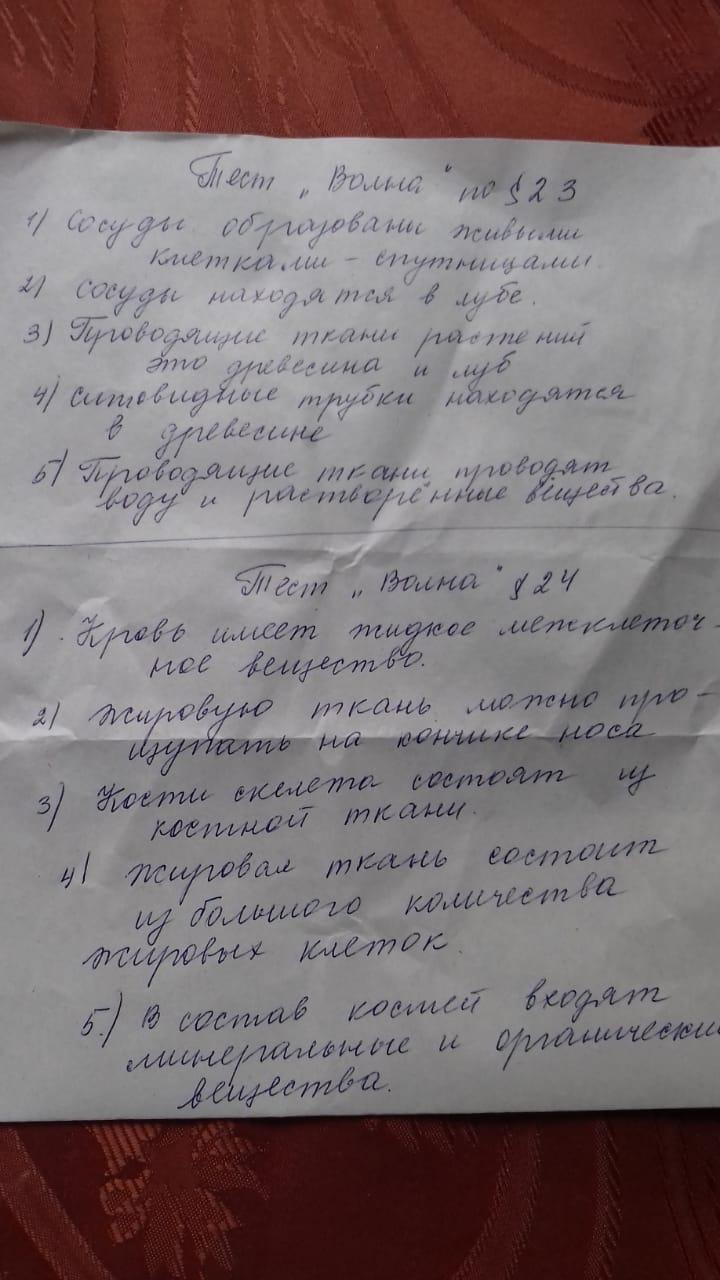 Тест „Волна" по § 23
1) Сосуды образованы живыми
клетками - спутницами.
2) сосуды находятся в лубе.
3) Проводящие ткани растений
это древесина и луб
4) Ситовидные трубки находятся
в древесине
5) Проводящие ткани проводят
воду и растворённые вещества.
Тест „Волна" § 24
1) Кровь имеет жидкое межклеточ-
ное вещество.
2) Жировую ткань можно про-
щупать на кончике носа
3) Кости скелета состоят из
костной ткани.
4) Жировая ткань состоит
из большого количества
жировых клеток.
5.) В состав костей входят
минеральные и органически
вещества.